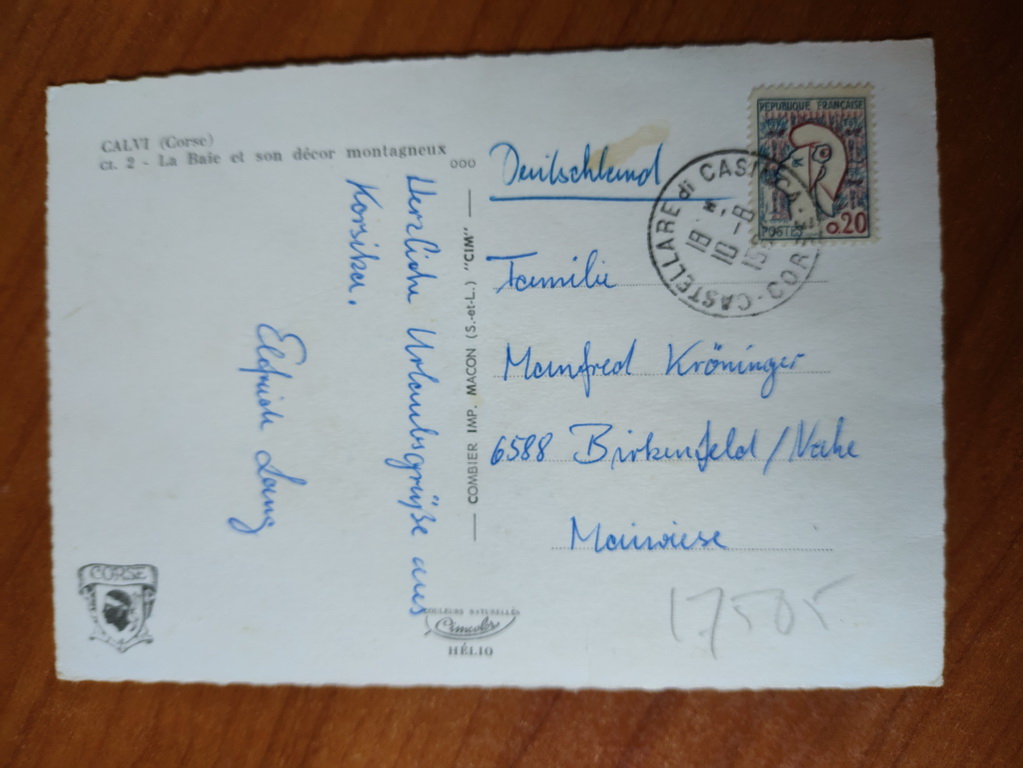 CALVI (Corse)
CI. 2 - La Baie et son décor montagneux
Herzliche Urlaubsgrüße aus
Korsika.
Elfriede Lang
COMBIER IMP. MACON (S.-et-L.) "CIM"
Deutschland
Familie
Manfred Kröninger
6588 Birkenfeld/Nahe
Maiwiese
17505
REPUBLIQUE FRANÇAISE
POSTES
0.20
CASTELLARE di CASINCA · CORSE
19 H
10-8
CORSE
COULEURS NATURELLES
Cimcolor
HÉLIO